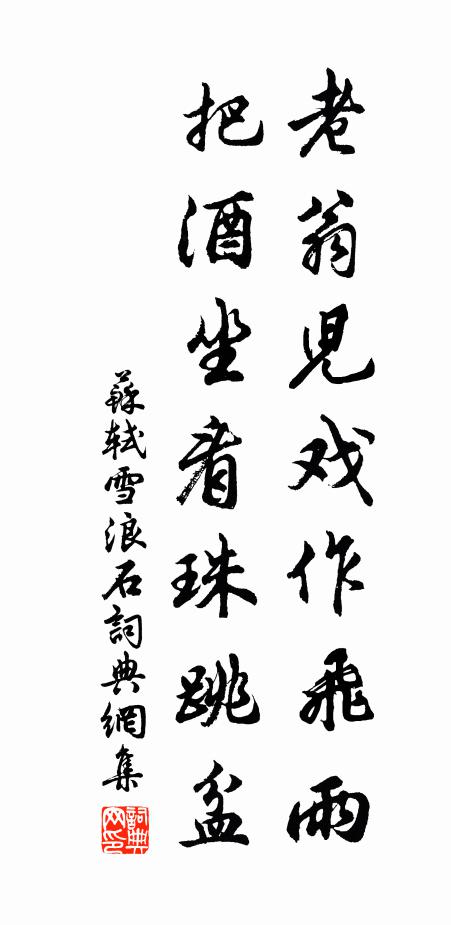 老翁兒戏作飛雨
把酒坐看珠跳盆
蘇軾雪浪石詞典網集
詞典网印